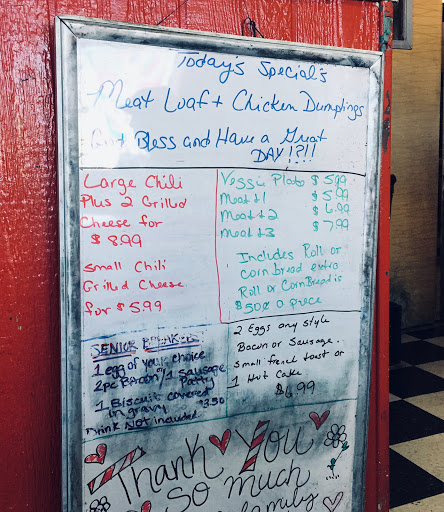 Today's Special's
Meat Loaf + Chicken Dumplings
God Bless and Have a Great
DAY!?!!
Large Chili
Plus 2 Grilled
Cheese for
$8.99
small Chili
Grilled Cheese
for $5.99
Veggie Plate $5.99
Meat+1 $5.99
Meat+2 $6.99
Meat+3 $7.99
Includes Roll or
corn bread extra
Roll or CornBread is
$50¢ a piece
SENIOR BREAKFAST
1 egg of your choice
2pc Bacon or 1 sausage
Patty
1 Biscuit covered
in gravy
Drink Not included $3.50
2 Eggs any style
Bacon or Sausage.
small french toast or
1 Hot Cake
$6.99
Thank You
so much
family